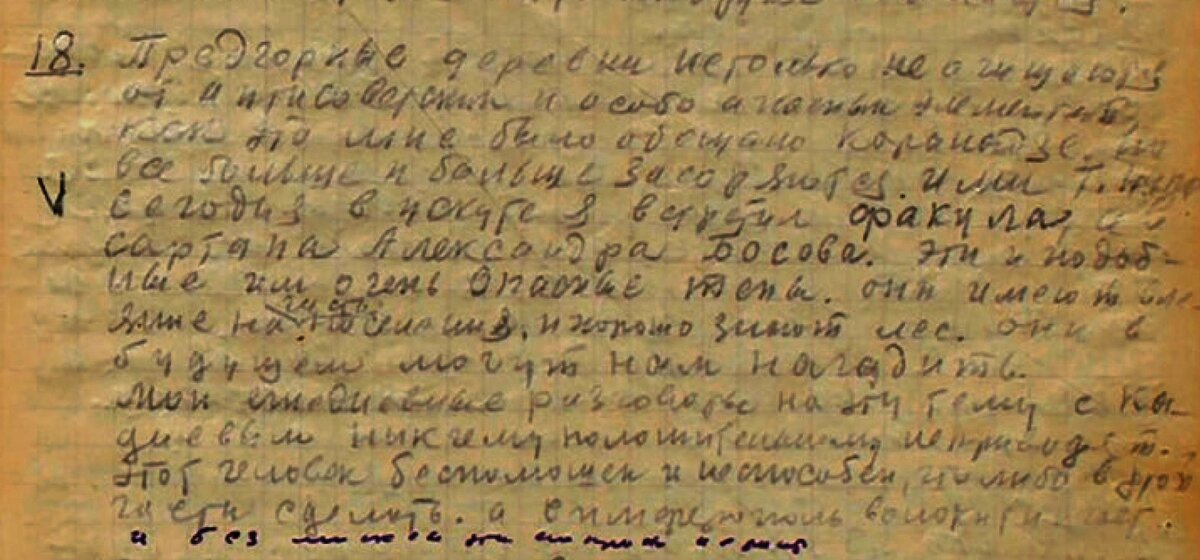 18. Предгорные деревни нетолько не очищаются
от антисоверских и особо опасных элементов,
как это мне было обещано Каранадзе, но
все больше и больше засоряются. ими
V Сегодня в я встретил факула, и
сартана Александра Босова. Эти и подоб-
ные им очень опасные типы. они имеют вли
яние на население, и хорошо знают лес. они в
будущем могут нам нагадить.
Мои ежедневные разговоры на эту тему с Ка-
диевым никчему положительному неприводят.
Этот человек беспомощен и неспособен, что либо в этой
части сделать. а Симферополь волокитит
и без